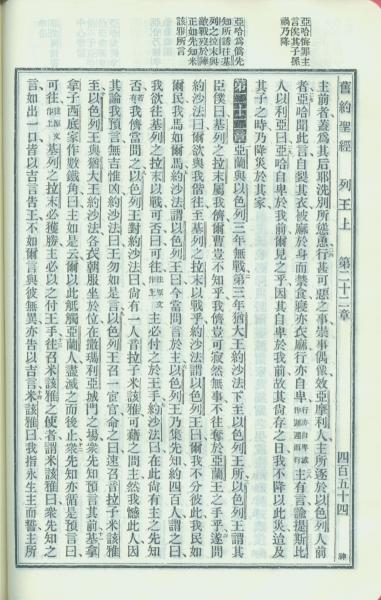 舊約聖經 列王上 第二十二章 四百五十四
亞哈悔罪主
言俟其子孫
禍乃降
亞哈爲僞先
知所誘往基
列之拉末與
敵戰歿於陣
正如先知米
該雅所言
主前者、蓋爲其后耶洗別所慫恿、行甚可惡之事、崇事偶像、效亞摩利人、主所逐於以色列人前
者、亞哈聞此言、自裂其衣、被麻於身而禁食、寢亦衣麻、行亦自卑、主有言諭提斯比
人以利亞曰、亞哈自卑於我前、爾見之乎、因其自卑於我前、故其尚存之日、我不降以此災、迨及
其子之時、乃降災於其家、
第二十二章 亞蘭與以色列三年無戰、第三年、猶大王約沙法下至以色列王所、以色列王謂其
臣僕曰、基列之拉末屬我儕、爾曹豈不知乎、我儕豈可寂然無事、不往奪於亞蘭王之手乎、遂問
約沙法曰、爾欲與我偕往至基列之拉末以戰乎、約沙法謂以色列王曰、爾我不分彼此、我民如
爾民、我馬如爾馬、約沙法謂以色列王曰、今當問於主、以色列王乃集先知約四百人、謂之曰、
我欲往基列之拉末以戰、可否、曰、可往、往原文作上主必付之於王手、約沙法曰、在此尚有主之先知
否、我儕當問之、以色列王對約沙法曰、尚有一人、音拉子米該雅、可藉之問主、然我憾此人、因
其論我、預言無吉惟凶、約沙法曰、王勿如是言、以色列王召一宦官、命之曰、速召音拉子米該雅
至、以色列王與猶大王約沙法各衣朝服、坐於位、在撒瑪利亞城門之場、衆先知預言其前、基拿
拿子西底家作數鐵角、曰、主如是云、爾以此觝觸亞蘭人、盡滅之而後止、衆先知亦循是預言、曰、
可往往原文作上基列之拉末、必獲勝、主必以之付王手、往召米該雅之使者、謂米該雅曰、衆先知之
言如出一口、皆以吉言告王、不如爾言與彼無異、亦告以吉言、米該雅曰、我指永生主而誓、主所